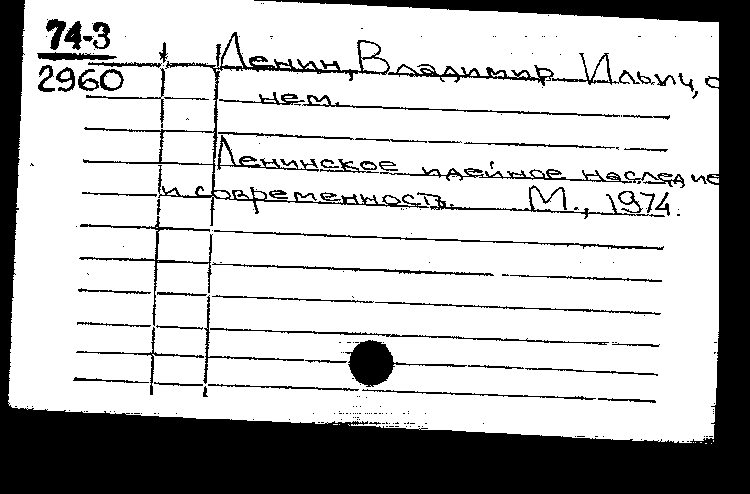 74-3
2960
Ленин, Владимир Ильич, о
нем.
Ленинское идейное наследие
и современность. М., 1974.